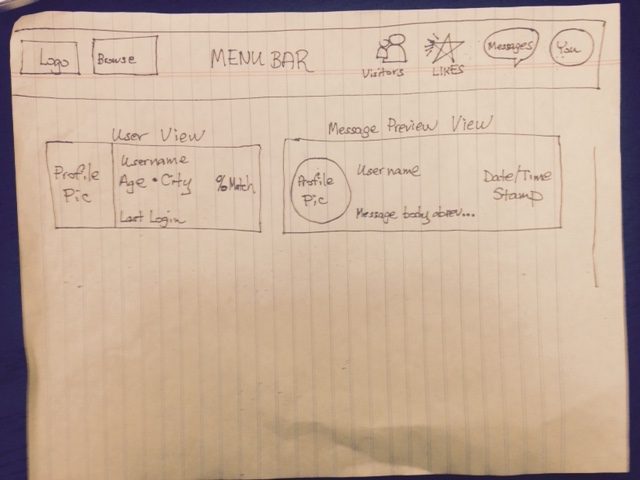 Logo
Browse
MENU BAR
Visitors
LIKES
Messages
You
User View
Profile
Pic
Username
Age • City
% Match
Last Login
Message Preview View
Profile
Pic
Username
Message body abrev...
Date/Time
Stamp